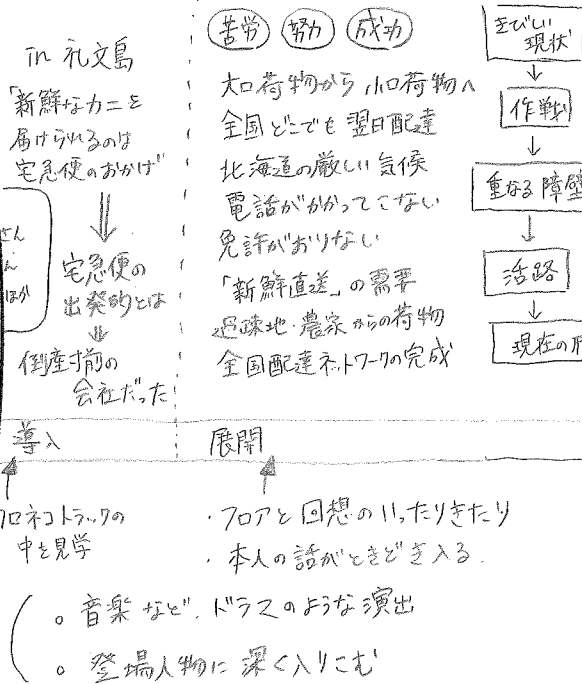 in 礼文島
「新鮮なカニを
届けられるのは
宅急便のおかげ
さん
ん
ほか
宅急便の
出発的とは
倒産寸前の
会社だった
導入
苦労 努力 成功
大口荷物から小口荷物へ
全国どこでも翌日配達
北海道の厳しい気候
電話がかかってこない
免許がおりない
「新鮮直送」の需要
過疎地・農家からの荷物
全国配達ネットワークの完成
展開
きびしい
現状
作戦
重なる障壁
活路
現在の
クロネコトラックの
中を見学
・フロアと回想のいったりきたり
・本人の話がときどき入る.
○ 音楽など、ドラマのような演出
○ 登場人物に深く入りこむ